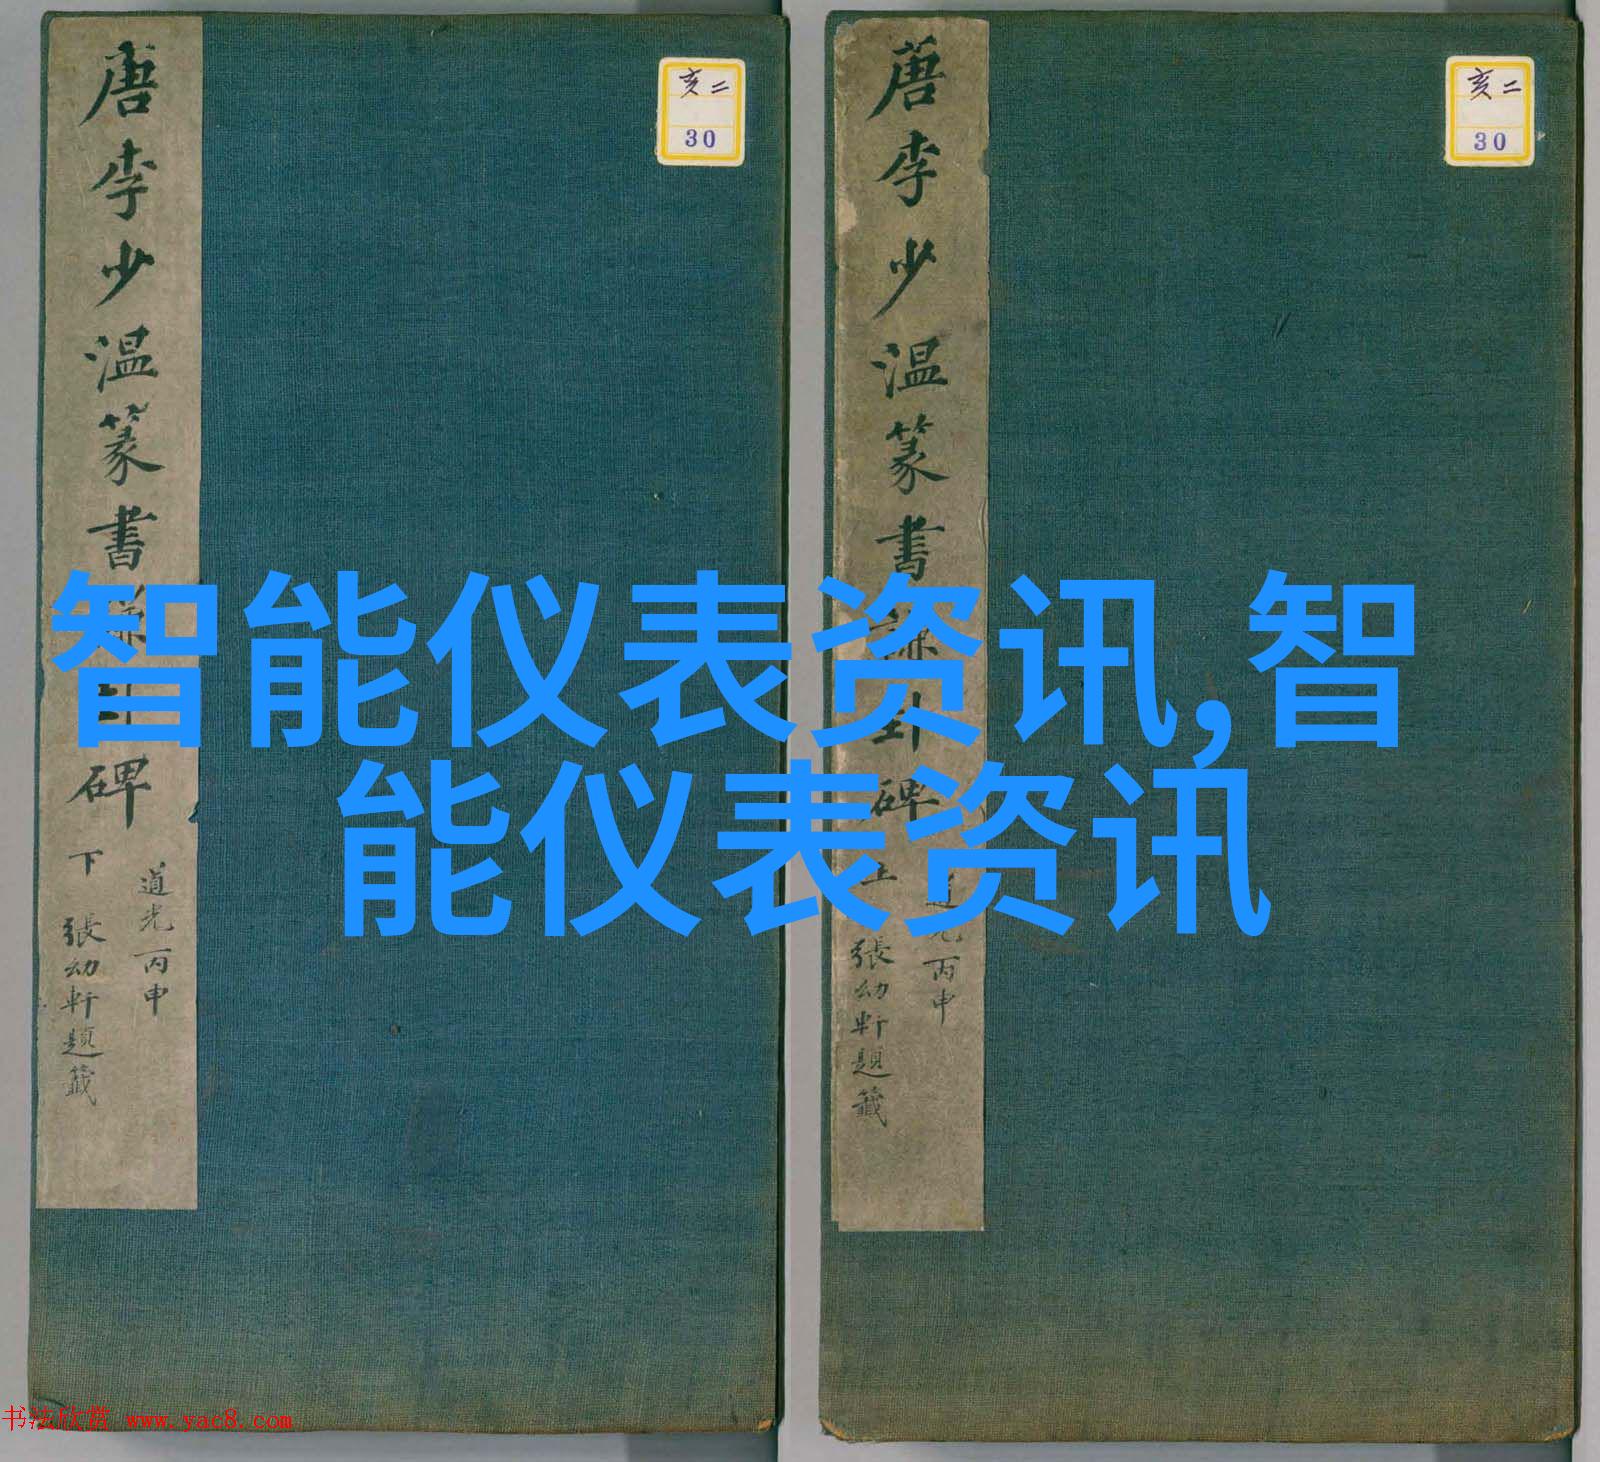 唐李少温篆書謙卦碑
下
道光丙申
張幼軒題籤
亥二
30
唐李少温篆書謙卦碑
上
道光丙申
張幼軒題籤
亥二
30
智能仪表资讯,智
能仪表资讯
书法欣赏 www.yac8.com